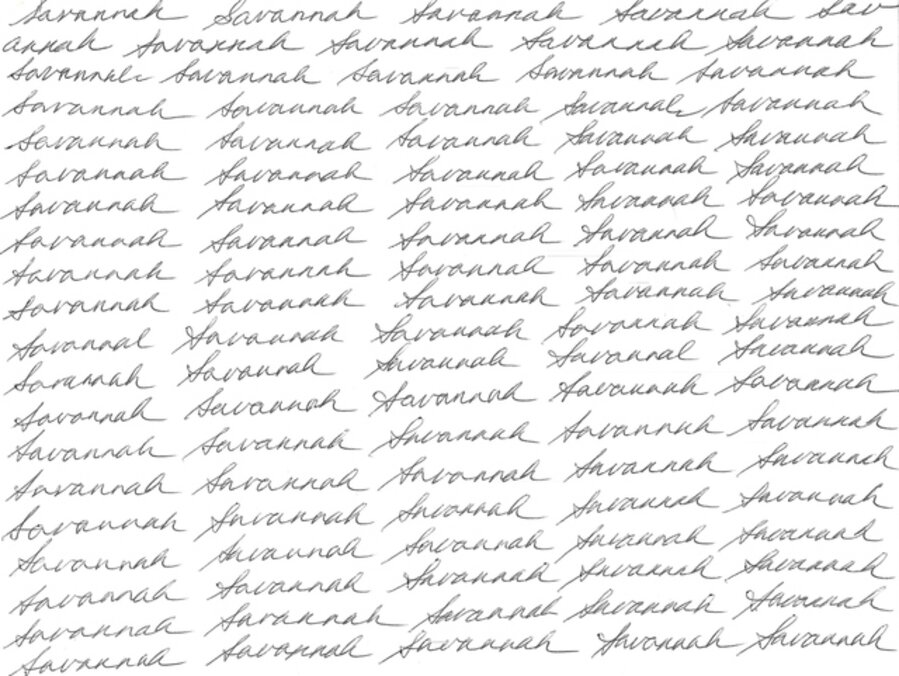 Savannah Savannah Savannah Savannah Sav
annah Savannah Savannah Savannah Savannah
Savannah Savannah Savannah Savannah Savannah
Savannah Savannah Savannah Savannah Savannah
Savannah Savannah Savannah Savannah Savannah
Savannah Savannah Savannah Savannah Savannah
Savannah Savannah Savannah Savannah Savannah
Savannah Savannah Savannah Savannah Savannah
Savannah Savannah Savannah Savannah Savannah
Savannah Savannah Savannah Savannah Savannah
Savannah Savannah Savannah Savannah Savannah
Savannah Savannah Savannah Savannah Savannah
Savannah Savannah Savannah Savannah Savannah
Savannah Savannah Savannah Savannah Savannah
Savannah Savannah Savannah Savannah Savannah
Savannah Savannah Savannah Savannah Savannah
Savannah Savannah Savannah Savannah Savannah
Savannah Savannah Savannah Savannah Savannah
Savannah Savannah Savannah Savannah Savannah
Savannah Savannah Savannah Savannah Savannah